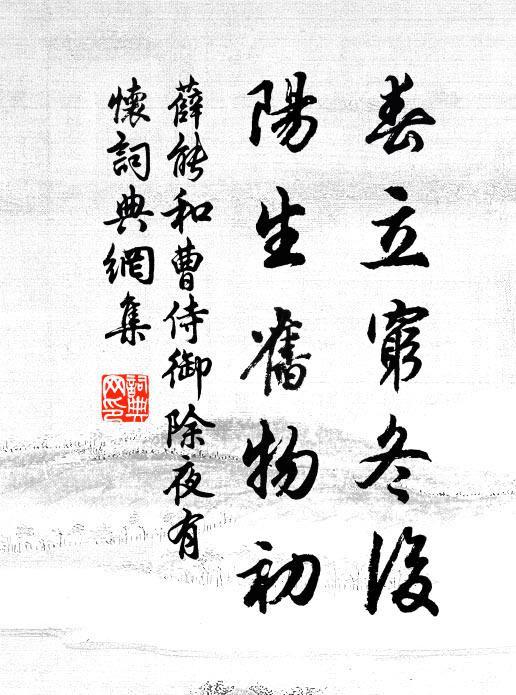 春立窮冬後
陽生舊物初
薛能和曹侍御除夜有
懷詞典網集
詞典
网印